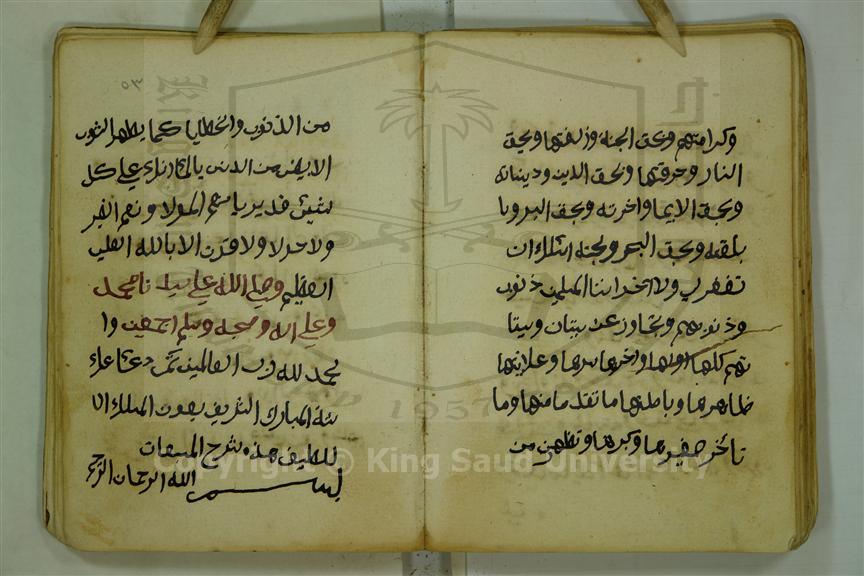 وكرامتهم وبحق الجنه وزلفتها وبحق
النار وحرقتها وبحق الدين وديناته
وبحق الايما واخرته وبحق البر وما
بلقته وبحق البحر ولجته اسئلك ان
تغفر لي ولاخواننا المسلمين ذنوب
وذنوبهم وتجاوز عن سيئات وسيئا
تهم كلها اولها واخرها سرها وعلانيتها
ظاهرها وباطنها ما تقدم منها وما
تأخر صغيرها وكبرها وتطهرن من
٥٣
من الذنوب والخطايا كما يطهر الثوب
الابيض من الدنس على كل
شيئ قدير يا نعم المولا ونعم النصير
ولا حولا ولا قوة الا بالله العلي
العظيم وصلى الله على سيدنا محمد
وعلى اله وصحبه وسلم اجمعين وا
لحمد لله رب العالمين تم دعا
المبارك الشريف بعون الملك ا
للطيف هذه شرح السبعات
بسم الله الرحمان الرحيم
Copyright © King Saud University
King Saud University
1957